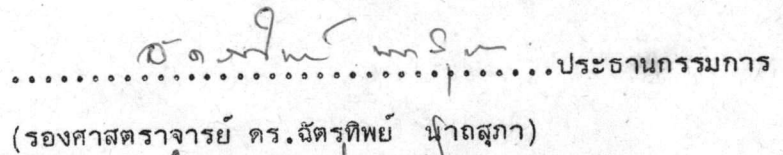 ........................................ประธานกรรมการ
(รองศาสตราจารย์ ดร.ฉัตรทิพย์ นาถสุภา)